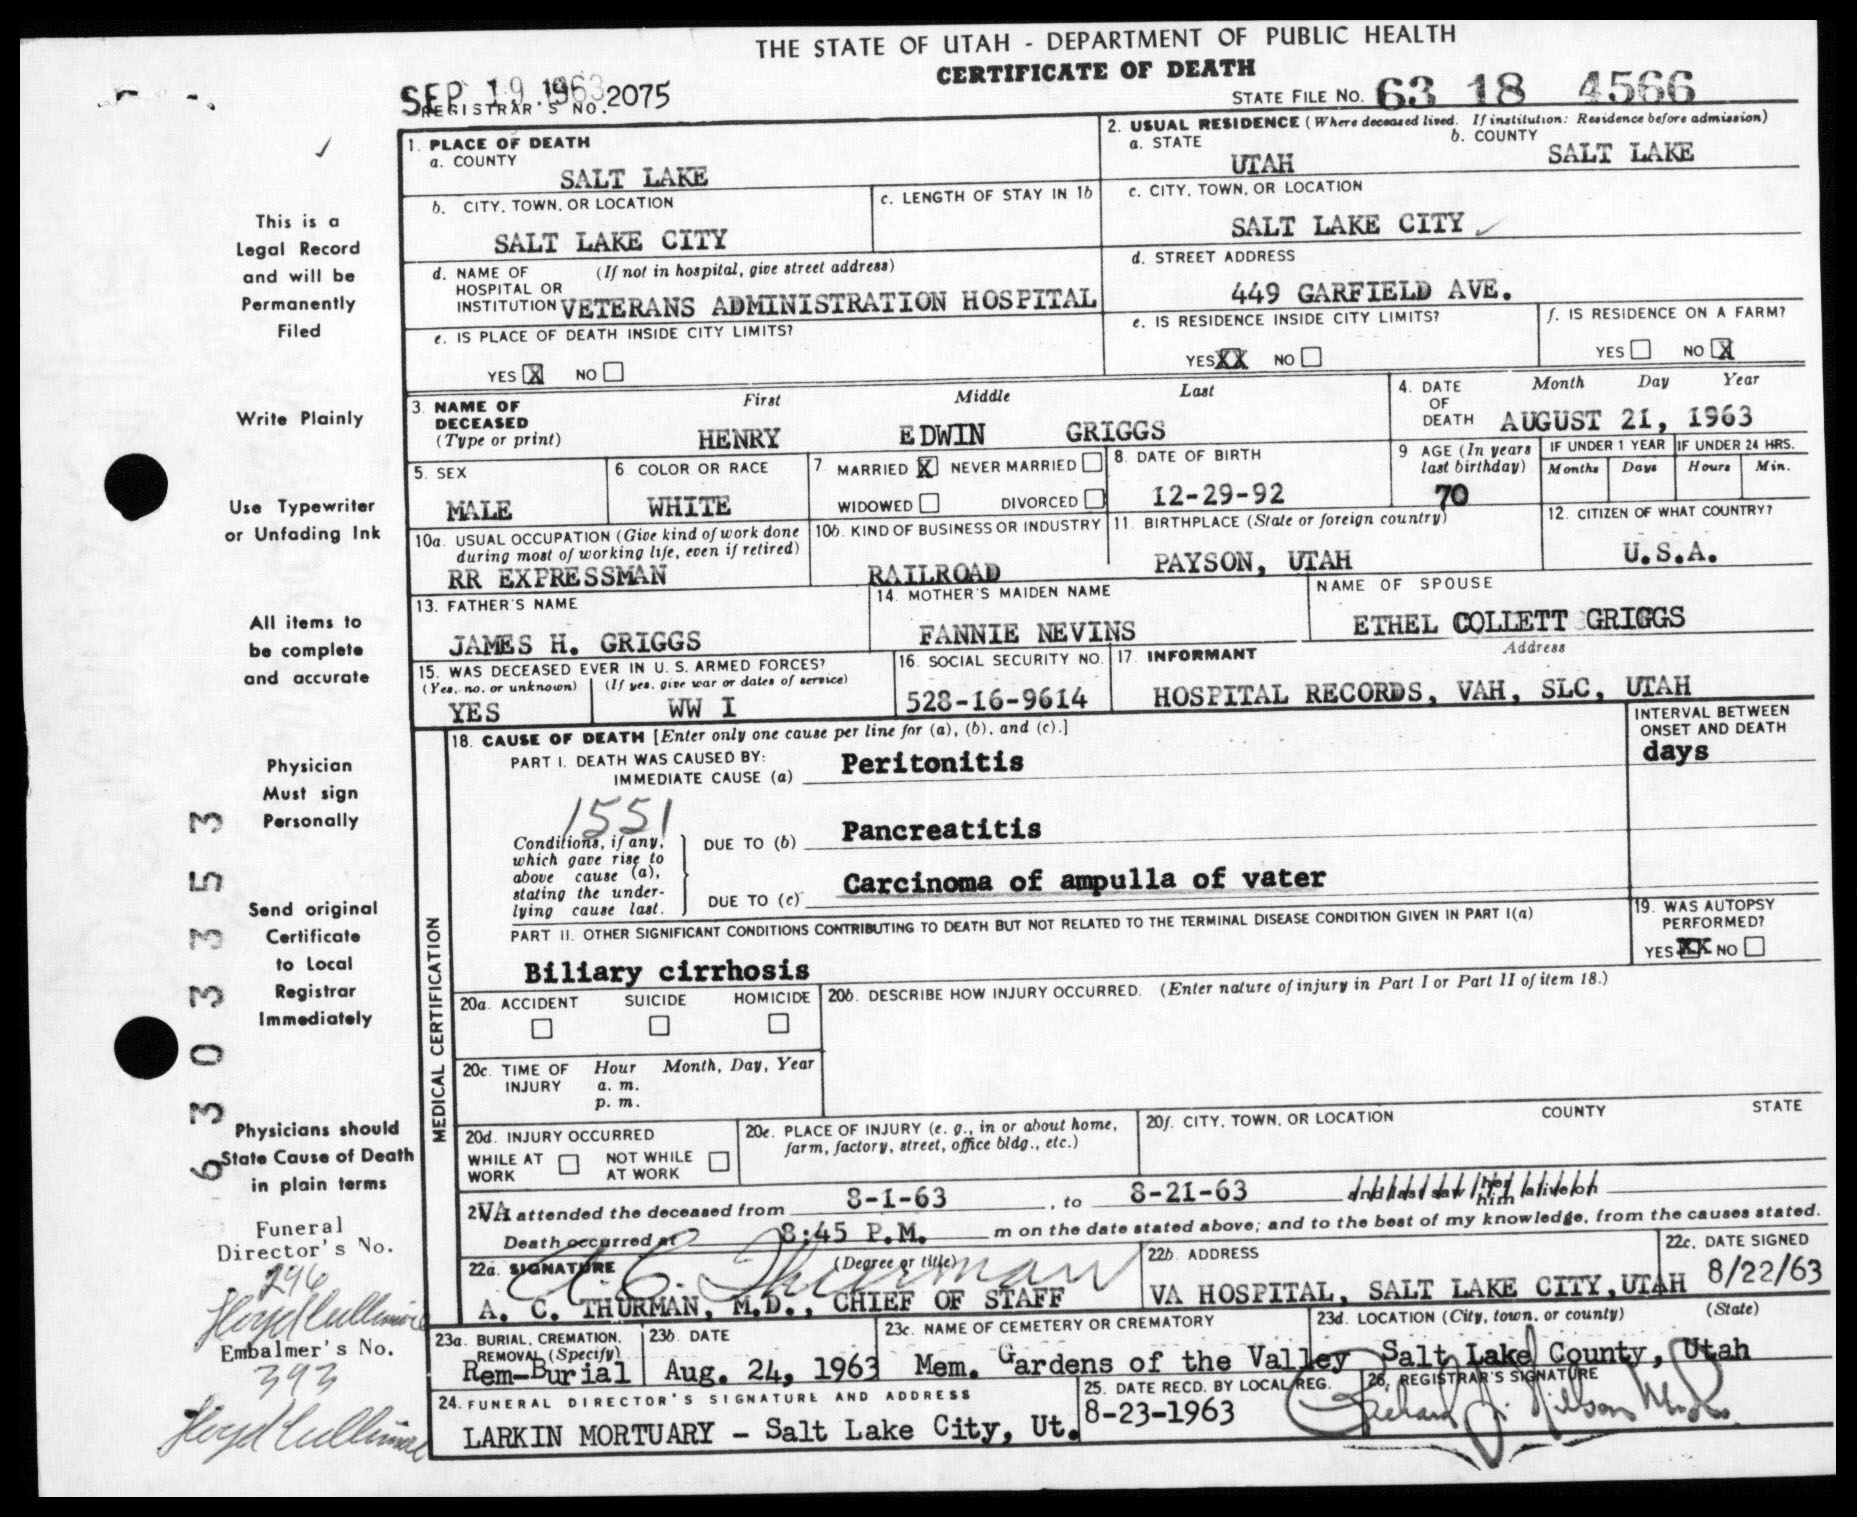 THE STATE OF UTAH - DEPARTMENT OF PUBLIC HEALTH
CERTIFICATE OF DEATH
SEP 19 1963
REGISTRAR'S NO. 2075
STATE FILE NO. 63 18 4566
This is a
Legal Record
and will be
Permanently
Filed
Write Plainly
Use Typewriter
or Unfading Ink
All items to
be complete
and accurate
Physician
Must sign
Personally
Send original
Certificate
to Local
Registrar
Immediately
Physicians should
State Cause of Death
in plain terms
Funeral
Director's No.
296
Floyd Cullimore
Embalmer's No.
393
Floyd Cullimore
6303353
1. PLACE OF DEATH
a. COUNTY
SALT LAKE
2. USUAL RESIDENCE (Where deceased lived. If institution: Residence before admission)
a. STATE
UTAH
b. COUNTY
SALT LAKE
b. CITY, TOWN, OR LOCATION
SALT LAKE CITY
c. LENGTH OF STAY IN 1b
c. CITY, TOWN, OR LOCATION
SALT LAKE CITY
d. NAME OF (If not in hospital, give street address)
HOSPITAL OR
INSTITUTION VETERANS ADMINISTRATION HOSPITAL
d. STREET ADDRESS
449 GARFIELD AVE.
e. IS PLACE OF DEATH INSIDE CITY LIMITS?
YES X NO
e. IS RESIDENCE INSIDE CITY LIMITS?
YES XX NO
f. IS RESIDENCE ON A FARM?
YES NO X
3. NAME OF
DECEASED
(Type or print)
First Middle Last
HENRY EDWIN GRIGGS
4. DATE
OF
DEATH
Month Day Year
AUGUST 21, 1963
5. SEX
MALE
6. COLOR OR RACE
WHITE
7. MARRIED X NEVER MARRIED
WIDOWED DIVORCED
8. DATE OF BIRTH
12-29-92
9. AGE (In years
last birthday)
70
IF UNDER 1 YEAR
Months Days
IF UNDER 24 HRS.
Hours Min.
10a. USUAL OCCUPATION (Give kind of work done
during most of working life, even if retired)
RR EXPRESSMAN
10b. KIND OF BUSINESS OR INDUSTRY
RAILROAD
11. BIRTHPLACE (State or foreign country)
PAYSON, UTAH
12. CITIZEN OF WHAT COUNTRY?
U.S.A.
13. FATHER'S NAME
JAMES H. GRIGGS
14. MOTHER'S MAIDEN NAME
FANNIE NEVINS
NAME OF SPOUSE
ETHEL COLLETT GRIGGS
15. WAS DECEASED EVER IN U. S. ARMED FORCES?
(Yes, no, or unknown) (If yes, give war or dates of service)
YES WW I
16. SOCIAL SECURITY NO.
528-16-9614
17. INFORMANT Address
HOSPITAL RECORDS, VAH, SLC, UTAH
MEDICAL CERTIFICATION
18. CAUSE OF DEATH [Enter only one cause per line for (a), (b), and (c).]
PART I. DEATH WAS CAUSED BY:
IMMEDIATE CAUSE (a) Peritonitis
INTERVAL BETWEEN
ONSET AND DEATH
days
1551
Conditions, if any,
which gave rise to
above cause (a),
stating the under-
lying cause last.
DUE TO (b) Pancreatitis
DUE TO (c) Carcinoma of ampulla of vater
PART II. OTHER SIGNIFICANT CONDITIONS CONTRIBUTING TO DEATH BUT NOT RELATED TO THE TERMINAL DISEASE CONDITION GIVEN IN PART I(a)
Biliary cirrhosis
19. WAS AUTOPSY
PERFORMED?
YES XX NO
20a. ACCIDENT SUICIDE HOMICIDE
20b. DESCRIBE HOW INJURY OCCURRED. (Enter nature of injury in Part I or Part II of item 18.)
20c. TIME OF
INJURY
Hour Month, Day, Year
a. m.
p. m.
20d. INJURY OCCURRED
WHILE AT
WORK
NOT WHILE
AT WORK
20e. PLACE OF INJURY (e. g., in or about home,
farm, factory, street, office bldg., etc.)
20f. CITY, TOWN, OR LOCATION COUNTY STATE
21. VA attended the deceased from 8-1-63, to 8-21-63 and last saw her him alive on
Death occurred at 8:45 P.M. m on the date stated above; and to the best of my knowledge, from the causes stated.
22a. SIGNATURE (Degree or title)
A C Thurman
A. C. THURMAN, M.D., CHIEF OF STAFF
22b. ADDRESS
VA HOSPITAL, SALT LAKE CITY, UTAH
22c. DATE SIGNED
8/22/63
23a. BURIAL, CREMATION,
REMOVAL (Specify)
Rem-Burial
23b. DATE
Aug. 24, 1963
23c. NAME OF CEMETERY OR CREMATORY
Mem. Gardens of the Valley
23d. LOCATION (City, town, or county) (State)
Salt Lake County, Utah
24. FUNERAL DIRECTOR'S SIGNATURE AND ADDRESS
LARKIN MORTUARY - Salt Lake City, Ut.
25. DATE RECD. BY LOCAL REG.
8-23-1963
26. REGISTRAR'S SIGNATURE
Richard J. Nilson